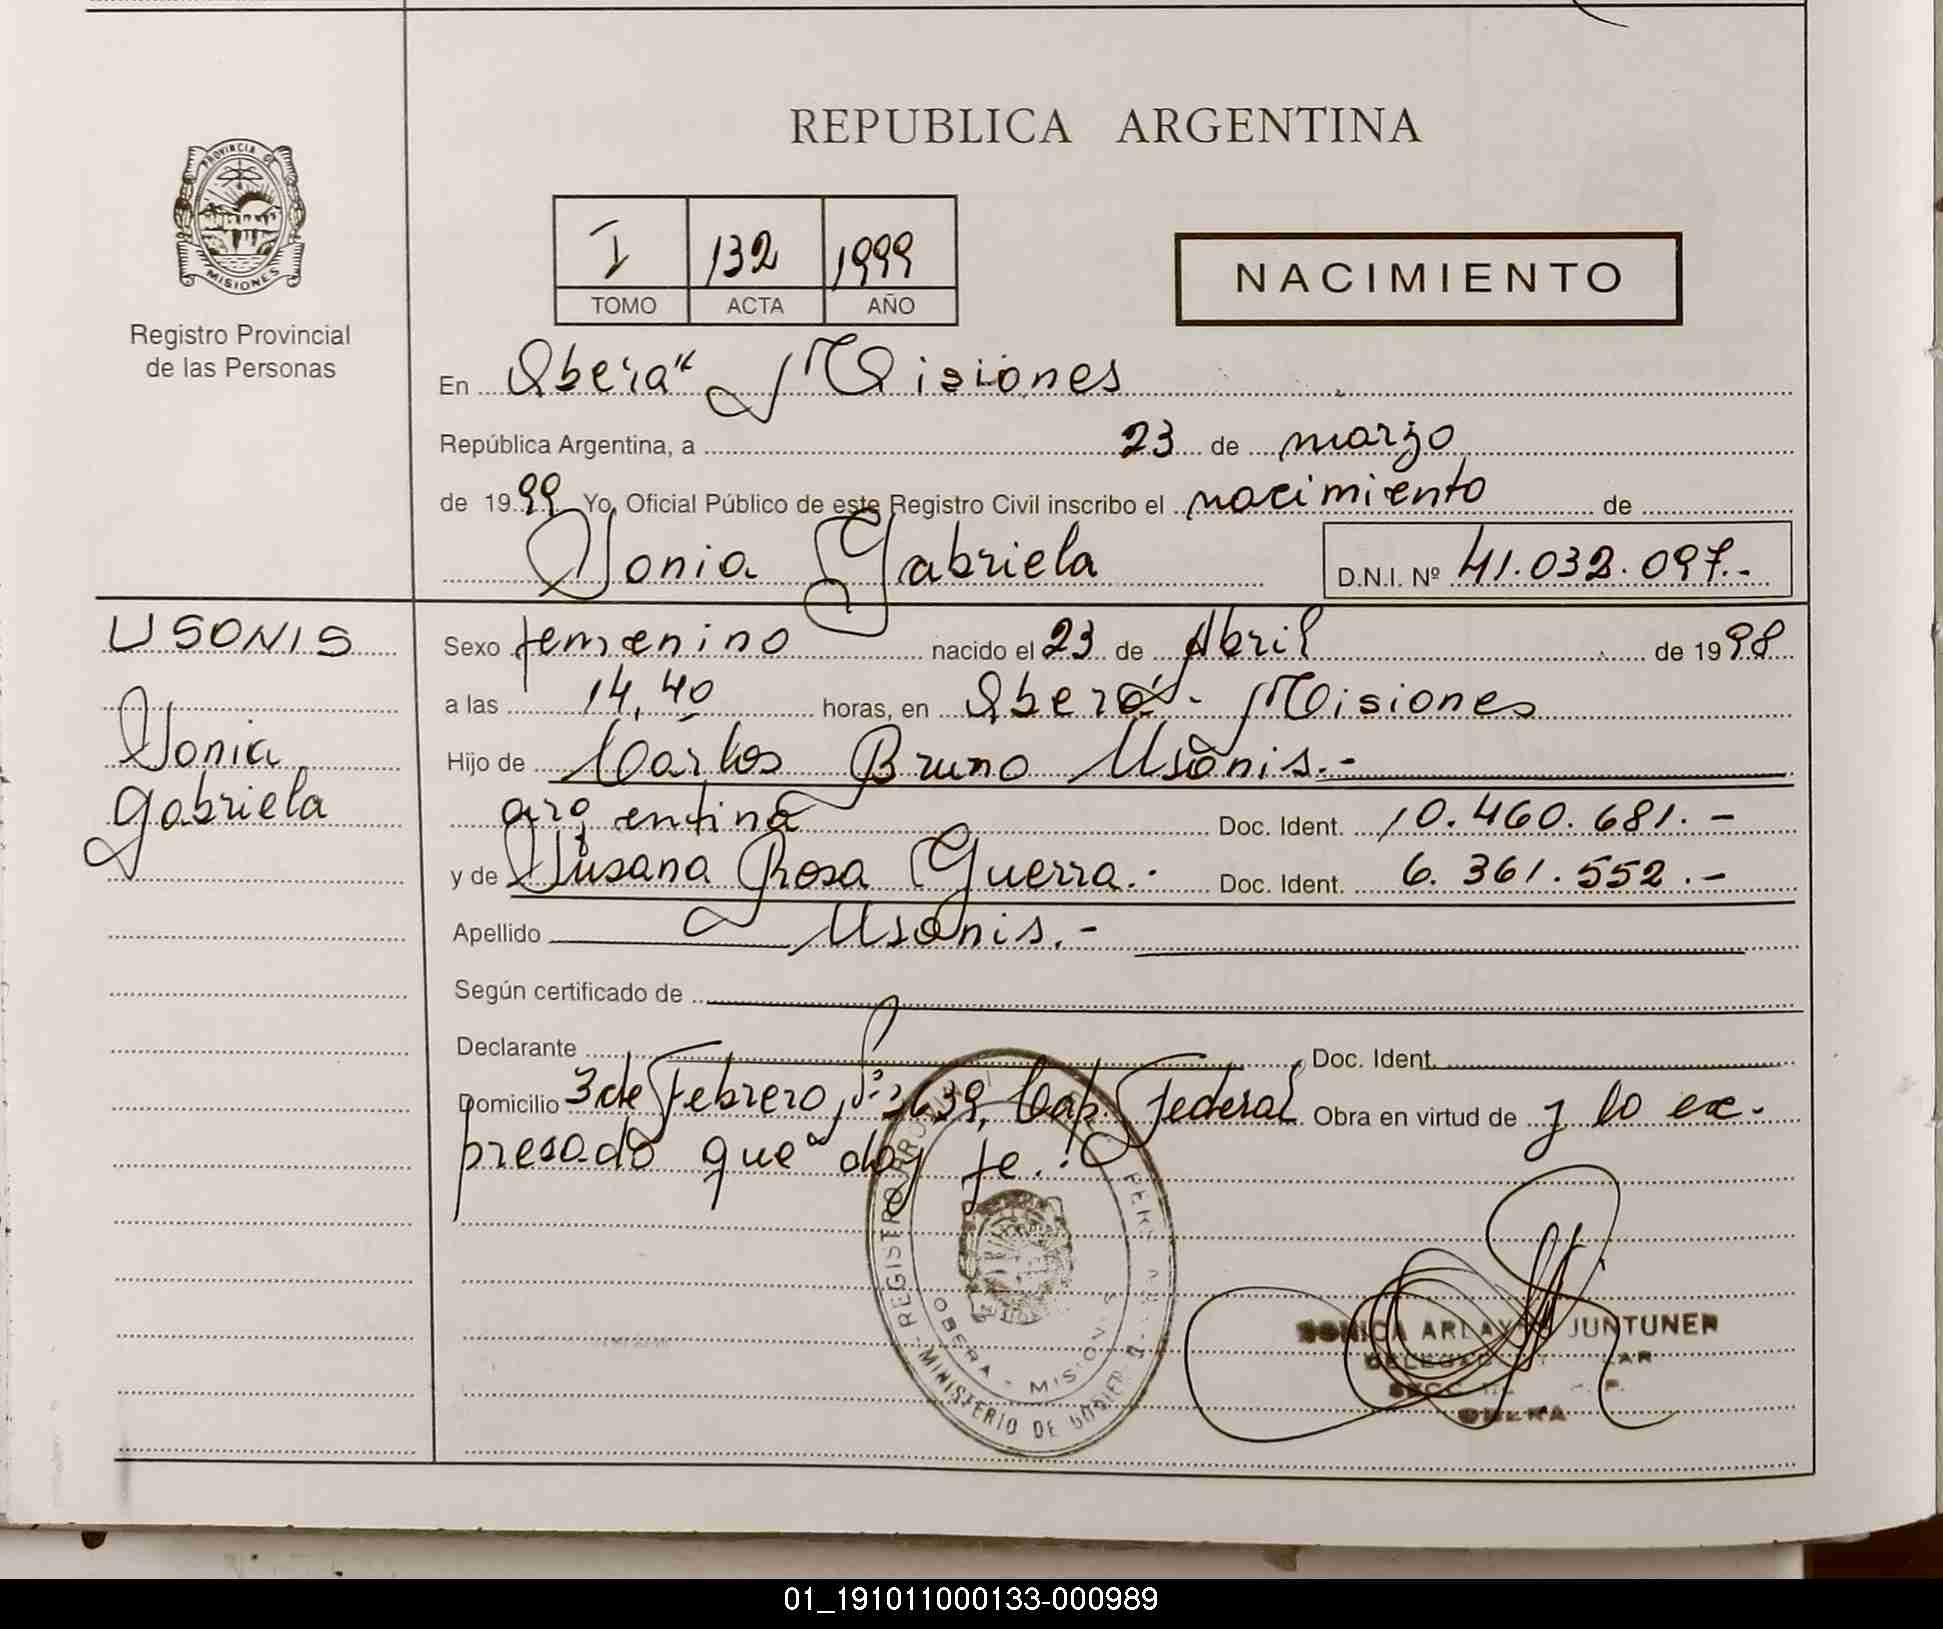 REPUBLICA ARGENTINA
PROVINCIA DE
MISIONES
Registro Provincial
de las Personas
I 132 1999
TOMO ACTA AÑO
NACIMIENTO
En Oberá Misiones
República Argentina, a 23 de marzo
de 1999 Yo, Oficial Público de este Registro Civil inscribo el nacimiento de
Sonia Gabriela D.N.I. Nº 41.032.097.-
USONIS
Sonia
Gabriela
Sexo femenino nacido el 23 de Abril de 1998
a las 14,40 horas, en Oberá - Misiones
Hijo de Carlos Bruno Usonis.-
argentina Doc. Ident. 10.460.681.-
y de Susana Rosa Guerra.- Doc. Ident. 6.361.552.-
Apellido Usonis.-
Según certificado de
Declarante Doc. Ident.
Domicilio 3 de Febrero, Nº 2639, Cap. Federal Obra en virtud de y lo ex-
presado que doy fe.-
REGISTRO
OBERA - MISIONES
MINISTERIO DE GOBIERNO
ARLAY JUNTUNEN
OBERA
01_191011000133-000989